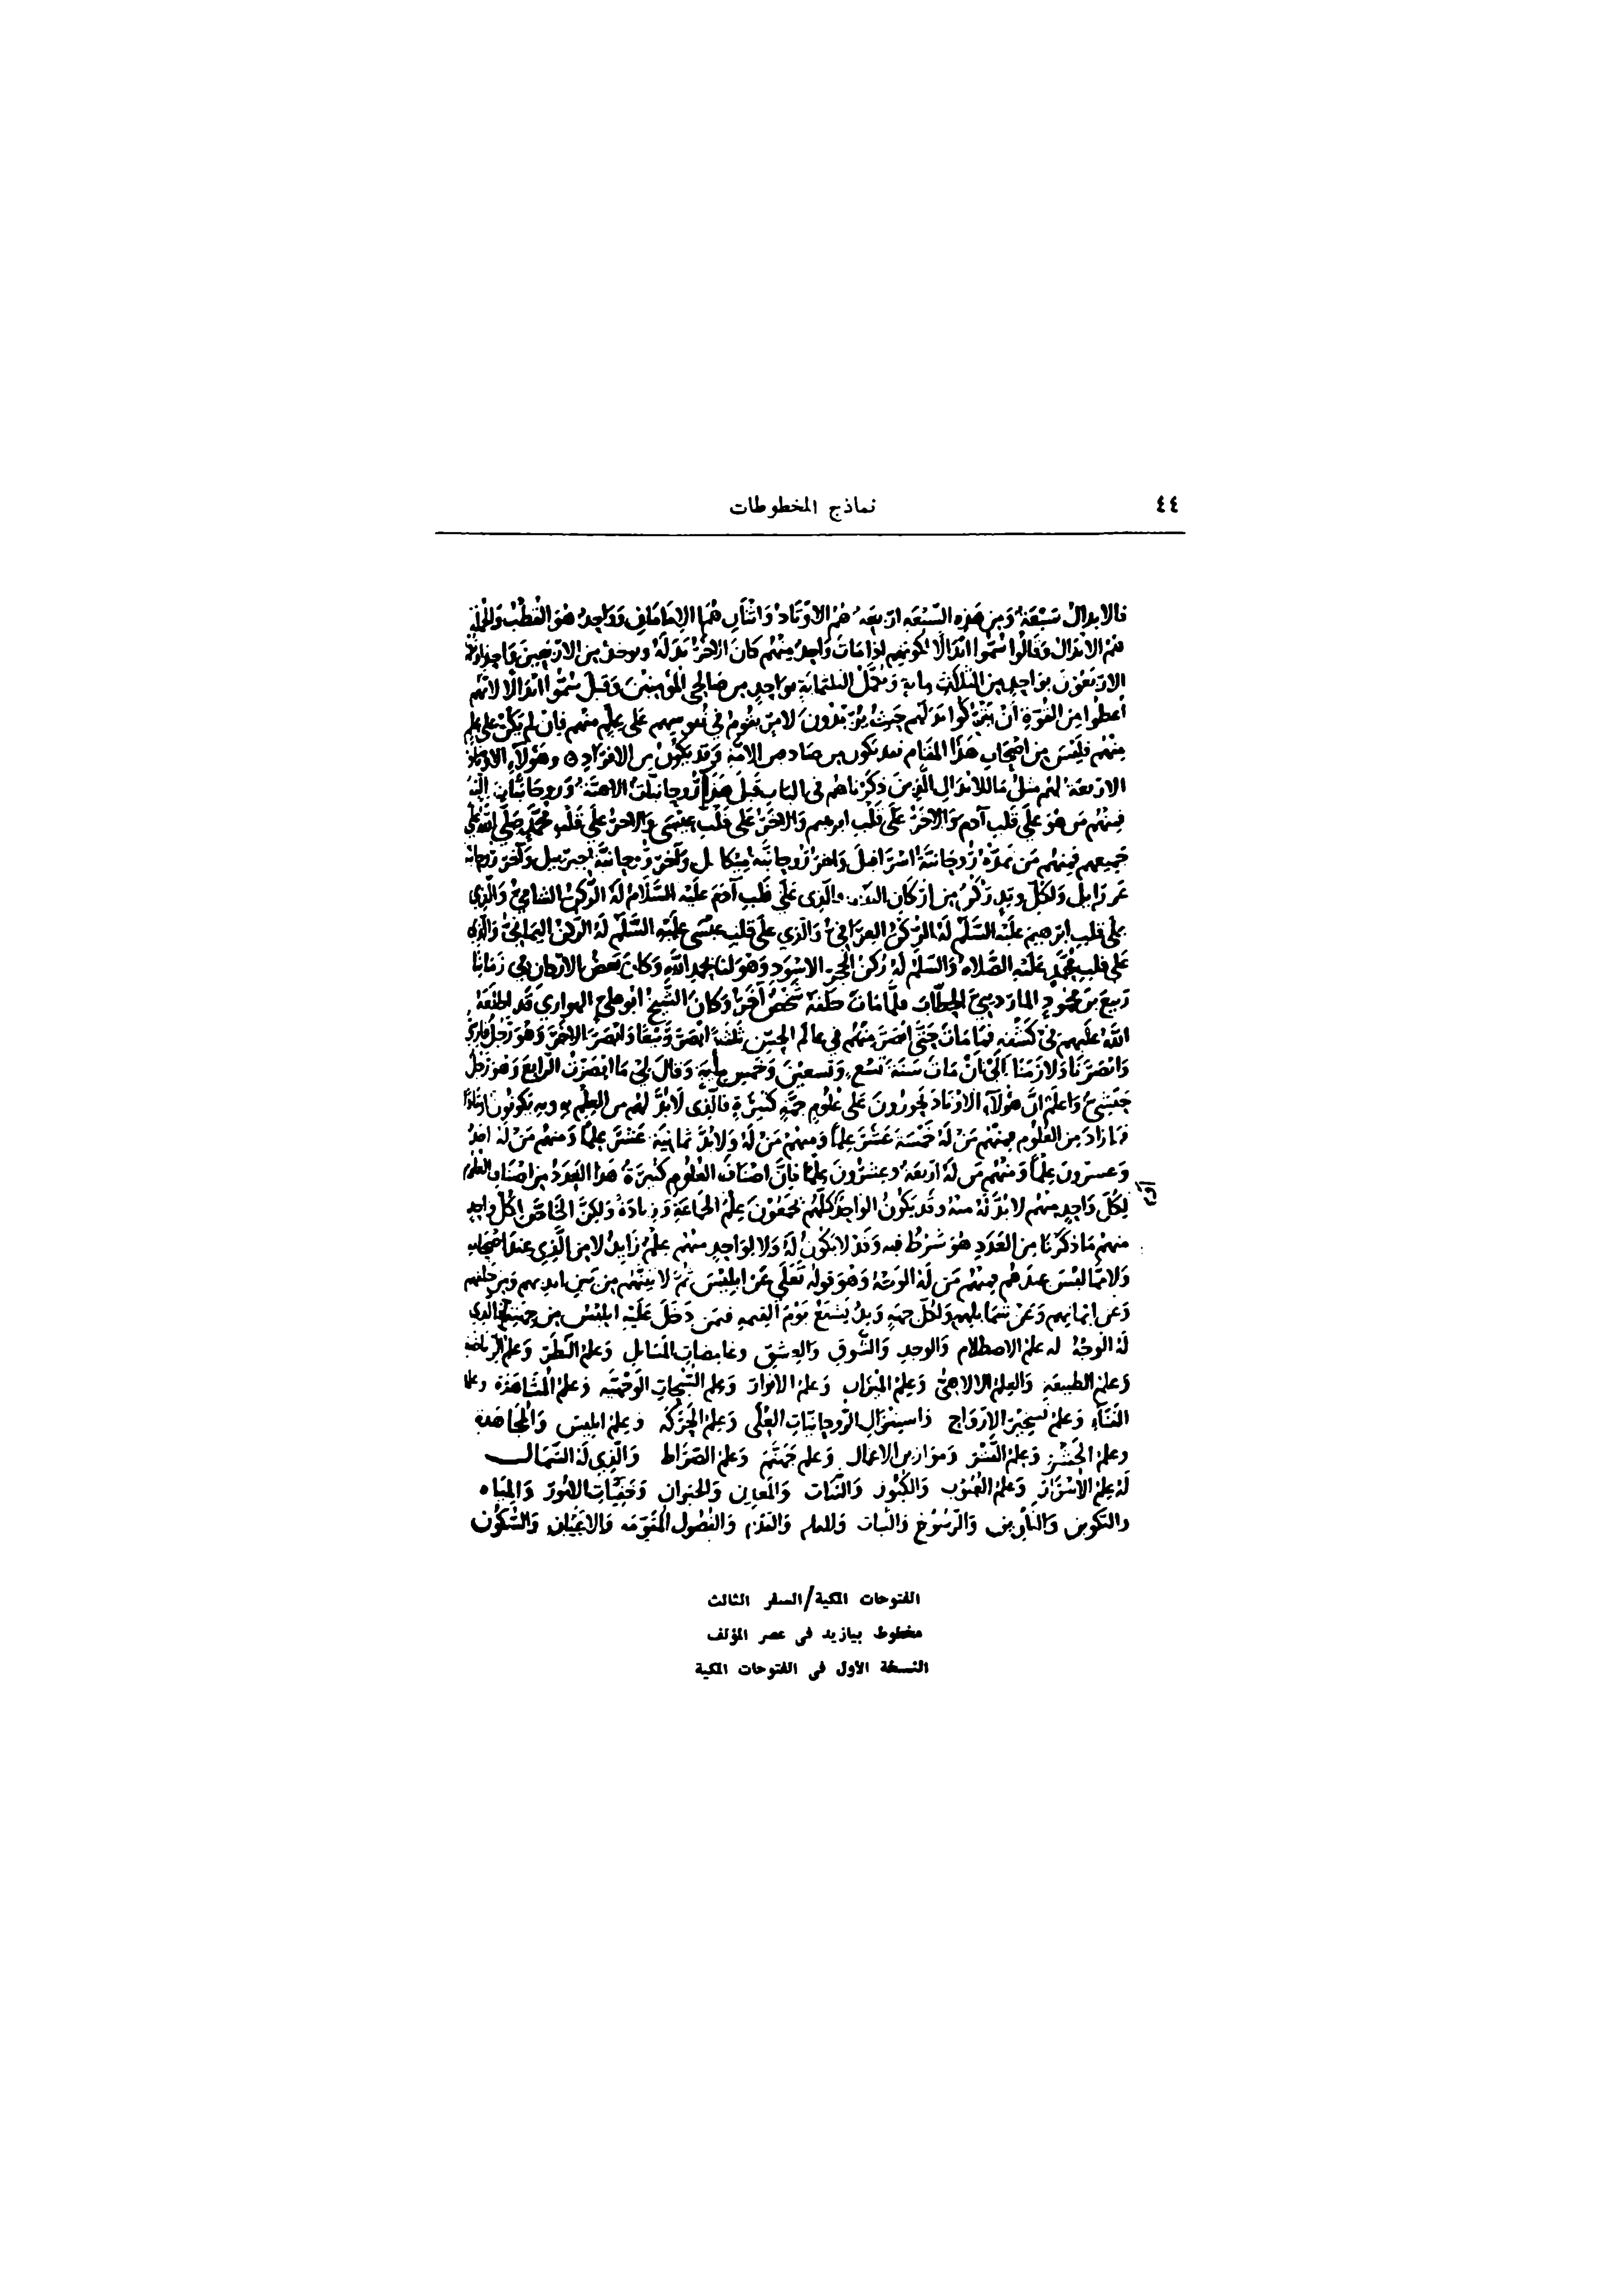 ٤٤
نماذج المخطوطات
فالابدال سبعة ومن هذه السبعه اربعه هم الاوتاد واثنان هما الامامان وواحد هو القطب والجملة
هم الابدال وقالوا سموا ابدالا لكونهم اذا مات واحد منهم كان الاخر بدله ويوخذ من الاربعين واحد
الاربعون بواحد من الثلاث ماية وتكمل الثلثماية بواحد من صالحي المؤمنين وقيل سموا ابدالا لانهم
أعطوا من القوة أن يتركوا بدلهم حيث يريدون لامر يقوم في نفوسهم على علم منهم فان لم يكن على علم
منهم فليس من اصحاب هذا المقام فقد يكون من صلحا الامة وقد يكون من الافراد ه وهولاء الاوتاد
الاربعة لهم مثل ما للابدال الذين ذكرناهم في الباب قبل هذا روحانيات الاهية وروحانيات اليه
فمنهم من هو على قلب آدم والاخر على قلب ابرهيم والاخر على قلب عيسى والاخر على قلب محمد صلى الله على
جميعهم فمنهم من تمده روحانية اسرافيل واخر روحانية ميكايل وآخر روحانية جبرييل وآخر روحانية
عزرايل ولكل وتد ركن من اركان البيت والذي على قلب آدم عليه السلام له الركن الشامي والذي
على قلب ابرهيم عليه السلم له الركن العراقي والذي على قلب عيسى عليه السلم له الركن اليماني والذي
على قلب محمد عليه الصلاه والسلم له ركن الحجر الاسود وهو لنا بحمد الله وكان بعض الاركان في زماننا
ربيع بن محمود المارديني الحطاب فلما مات خلفه شخص آخر وكان الشيخ ابو علي الهواري قد اطلعه
الله عليهم في كشفه فما مات حتى ابصر منهم في عالم الحس ثلثة ابصر ربيعا وابصر الاخر وهو رجل فارسي
وابصرنا ولازمنا الى ان مات سنة تسع وتسعين وخمس ماية وقال لي ما ابصرت الرابع وهو رجل
حبشي واعلم ان هولاء الاوتاد يحوون على علوم جمة كثيرة فالذي لابد لهم من العلم به وبه يكونون اوتادا
فما زاد من العلوم فمنهم من له خمسة عشر علما ومنهم من له ولابد ثمانية عشر علما ومنهم من له احد
وعشرون علما ومنهم من له اربعة وعشرون علما فان اصناف العلوم كثيرة هذا العدد من اصناف العلوم
لكل واحد منهم لا بد له منه وقد يكون الواحد كلهم يجمعون علم الجماعة وزيادة ولكن الخاص لكل واحد
منهم ما ذكرنا من العدد هو شرط فيه وقد لا يكون له ولا لواحد منهم علم زايد لا من الذي عند اصحابه
ولا مما ليس عندهم فمنهم من له الوجه وهو قوله تعلى عن ابليس ثم لآتينهم من بين ايديهم ومن خلفهم
وعن ايمانهم وعن شمايلهم ولكل جهه وتد يشفع يوم القيمه فيمن دخل عليه ابليس من جهته فالذي
له الوجه له علم الاصطلام والوجد والشوق والعشق وغامضات المسايل وعلم النظر وعلم الرياضة
وعلم الطبيعه والعلم الالاهي وعلم الميزان وعلم الانوار وعلم السبحات الوجهيه وعلم المشاهدة وعلم
الفناء وعلم تسخير الارواح واستنزال الروحانيات العلى وعلم الحركة وعلم ابليس والمجاهدة
وعلم الحشر وعلم النشر وموازين الاعمال وعلم جهنم وعلم الصراط والذي له الشمال
له علم الاسرار وعلم الغيوب والكنوز والنبات والمعادن والحيوان وخفيات الامور والمياه
والتكوين والتلوين والرسوخ والثبات والمقام والقدم والفصول المقومه والاعيان والسكون
الفتوحات المكية/السفر الثالث
مخطوط بيازيد في عصر المؤلف
النسخة الأولى في الفتوحات المكية